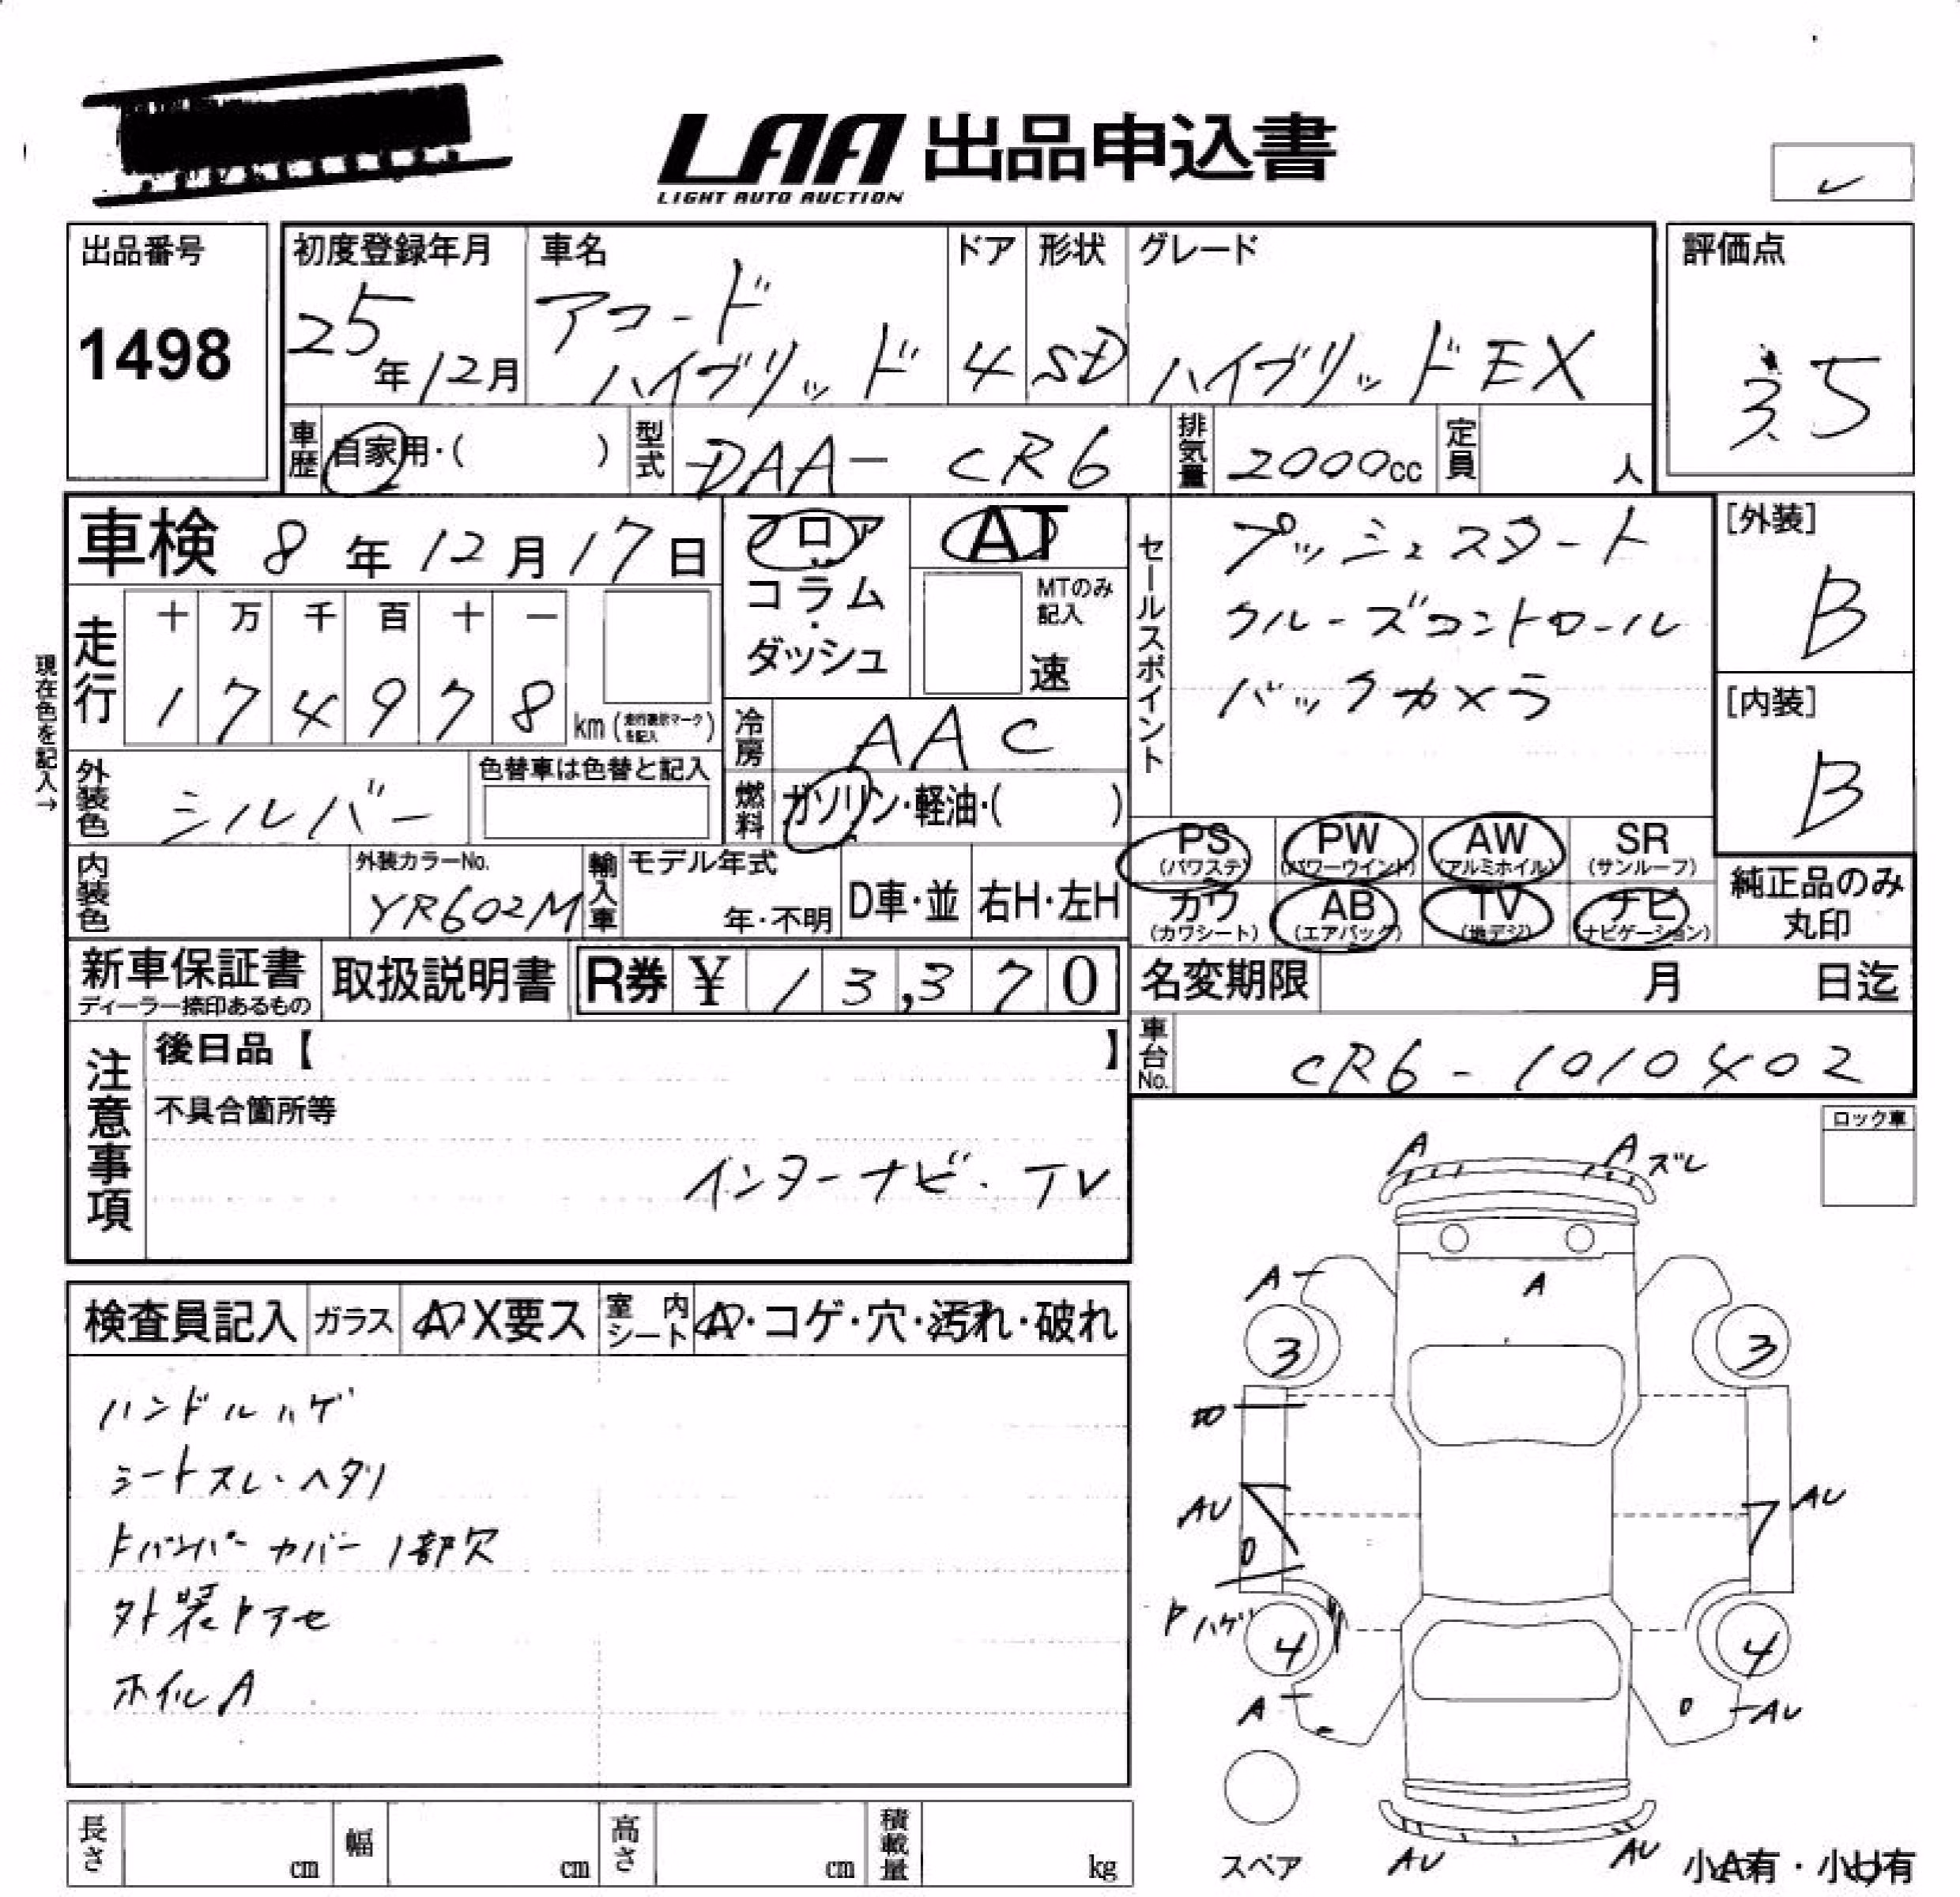 LAA 出品申込書
LIGHT AUTO AUCTION
出品番号
1498
初度登録年月
25年12月
車名
アコード
ハイブリッド
ドア
4
形状
SD
グレード
ハイブリッドEX
評価点
3.5
車歴 自家用・( )
型式 DAA-CR6
排気量 2000cc
定員 人
車検 8年12月17日
フロア
コラム
・
ダッシュ
AT
MTのみ
記入
速
セールスポイント
プッシュスタート
クルーズコントロール
バックカメラ
[外装]
B
[内装]
B
現在色を記入→
走行
十 万 千 百 十 一
1 7 4 9 7 8 km
(走行表示マークを記入)
冷房 AAC
外装色 シルバー
色替車は色替と記入
燃料 ガソリン・軽油・( )
PS (パワステ)
PW (パワーウインド)
AW (アルミホイル)
SR (サンルーフ)
カワ (カワシート)
AB (エアバック)
TV (地デジ)
ナビ (ナビゲーション)
純正品のみ
丸印
内装色
外装カラーNo.
YR602M
輸入車
モデル年式
年・不明
D車・並
右H・左H
新車保証書
ディーラー捺印あるもの
取扱説明書
R券 ¥13,370
名変期限 月 日迄
車台No. CR6-1010402
注意事項
後日品【 】
不具合箇所等
インターナビ・TV
ロック車
検査員記入
ガラス
A X要ス
室内シート
A・コゲ・穴・汚れ・破れ
ハンドルハゲ
シートスレ・ヘタリ
下バンパーカバー1部欠
外装トアセ
ホイルA
A
A ズレ
A
A
3
3
AU
AU
ハゲ
4
4
A
AU
スペア
AU
AU
小A有・小U有
長さ cm
幅 cm
高さ cm
積載量 kg